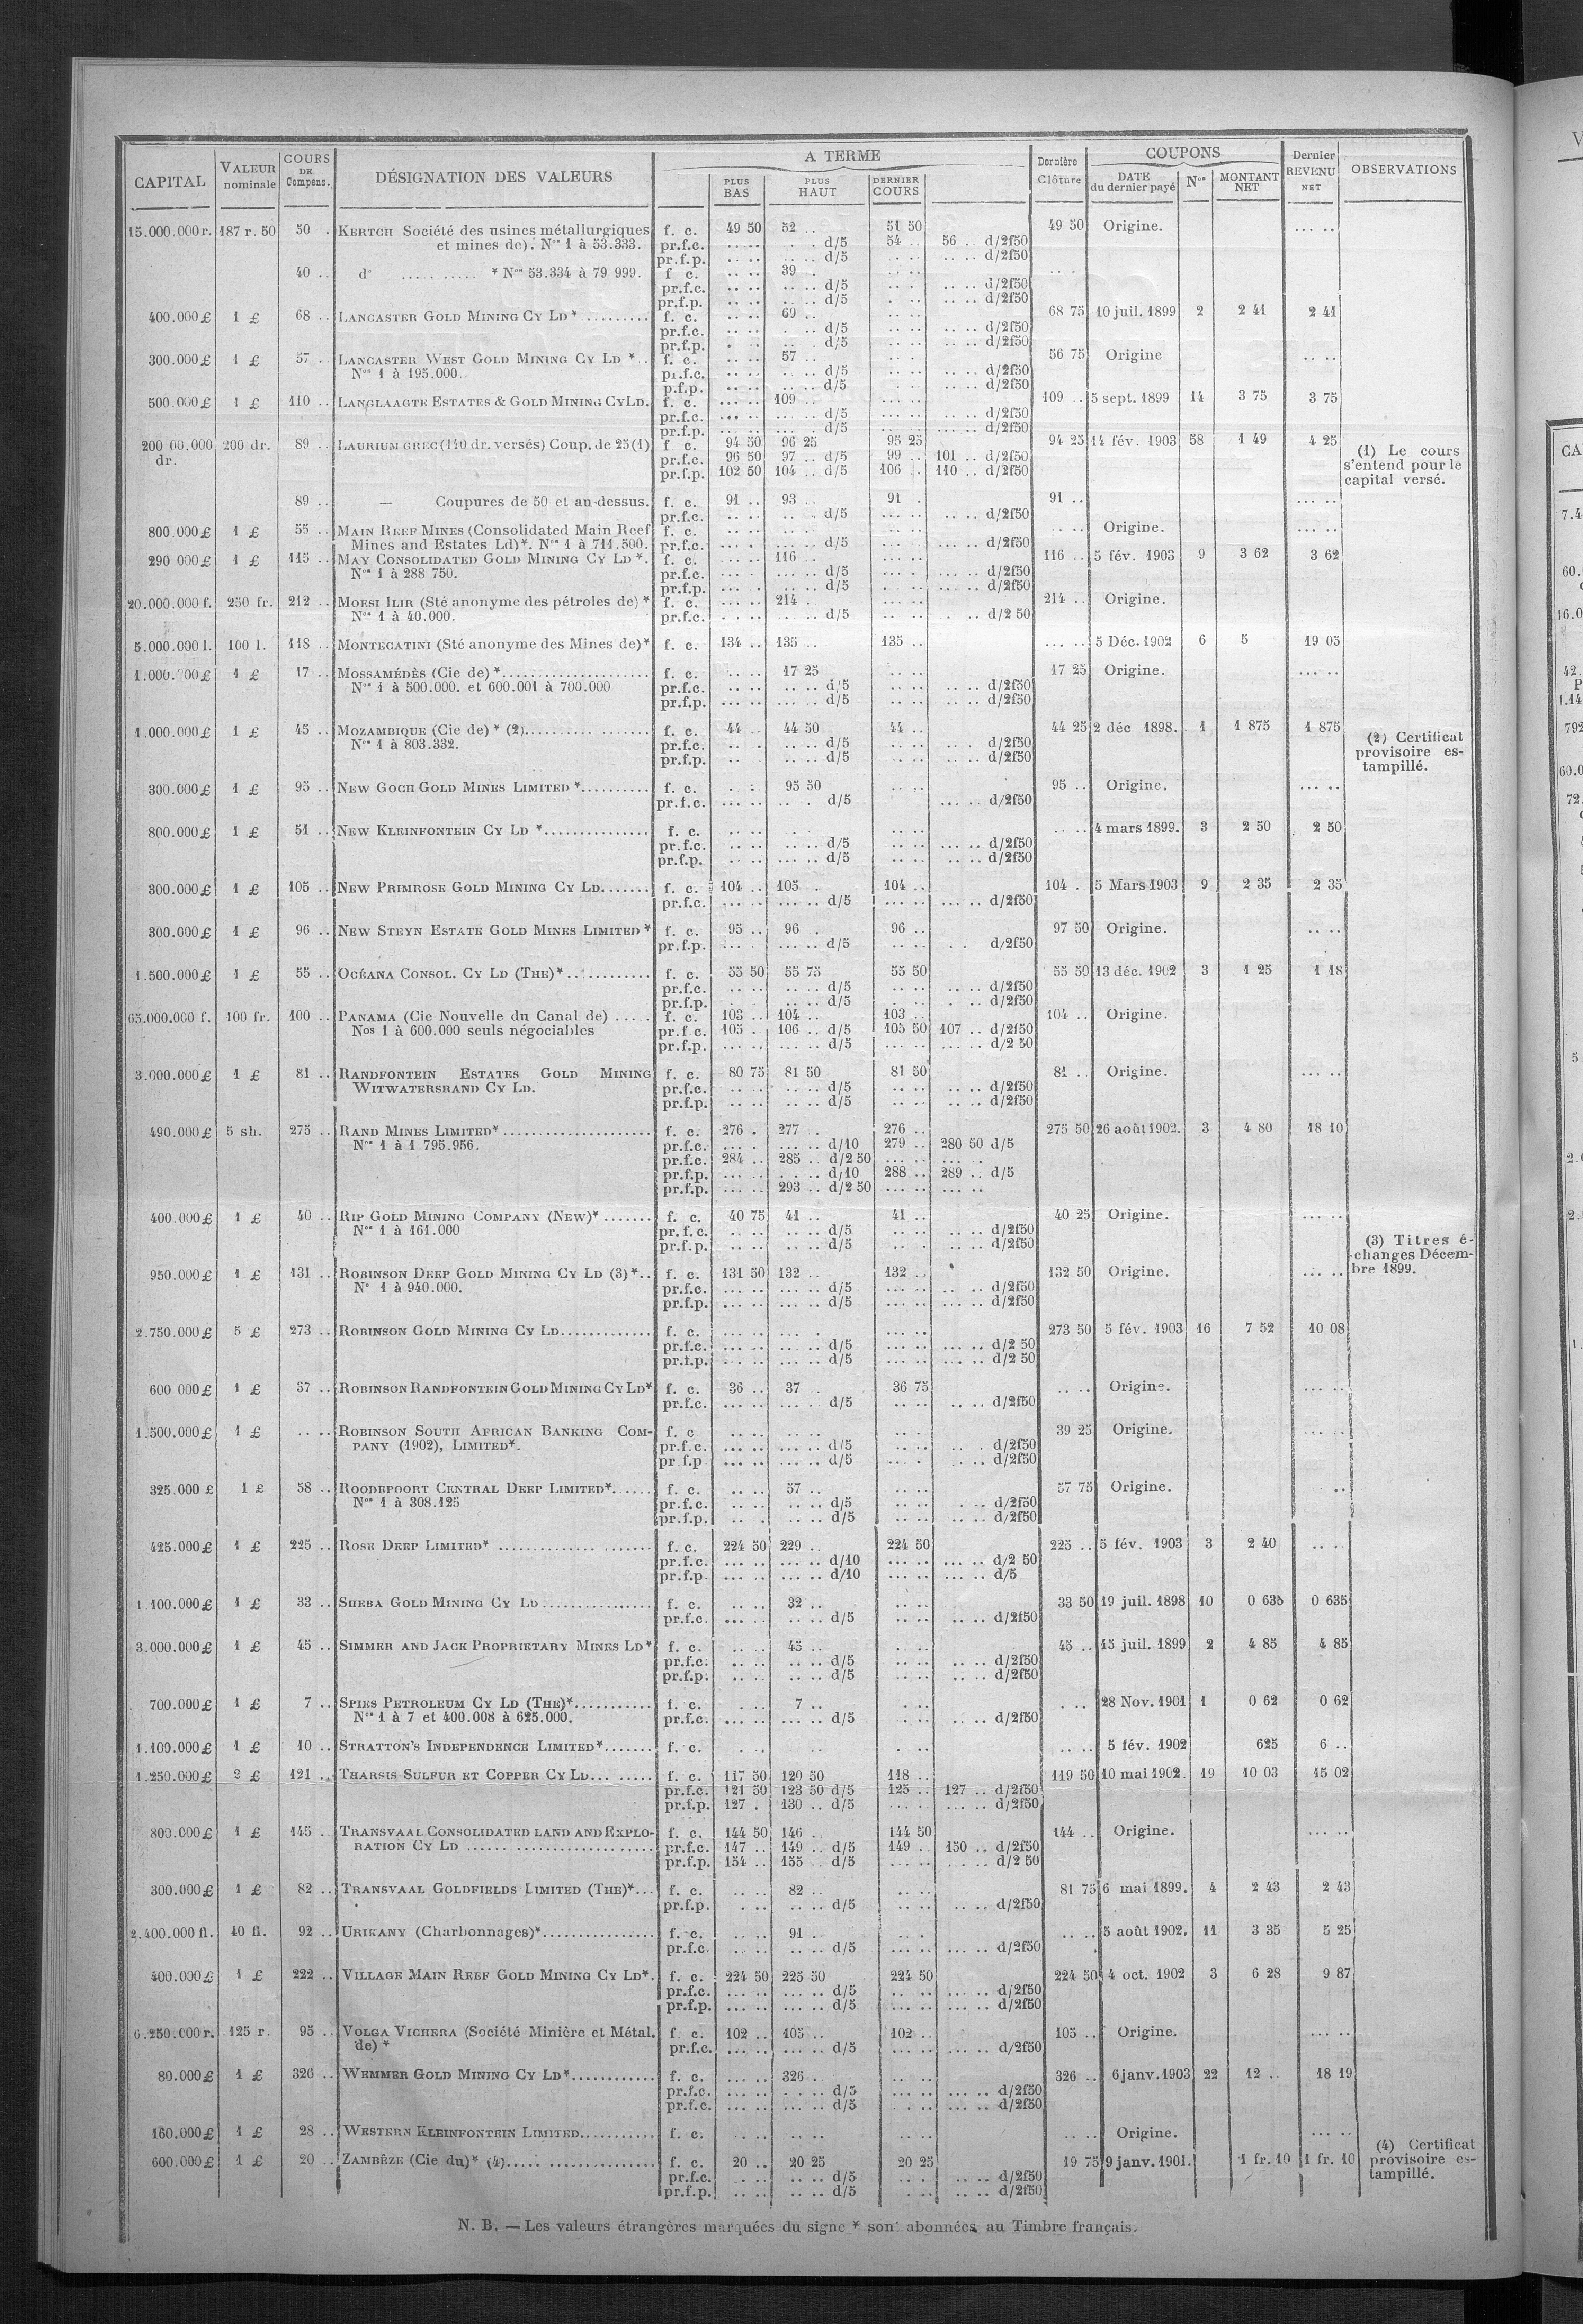 CAPITAL VALEUR nominale COURS DE Compens. DÉSIGNATION DES VALEURS A TERME PLUS BAS PLUS HAUT DERNIER COURS Dernière Clôture COUPONS DATE du dernier payé Nos MONTANT NET Dernier REVENU NET OBSERVATIONS
15.000.000 r. 187 r. 50 50 . KERTCH Société des usines métallurgiques f. c. 49 50 52 .. 51 50 49 50 Origine. ... ..
et mines de). Nos 1 à 53.333. pr.f.c. .. .. . d/5 54 .. 56 .. d/2f50
pr.f.p. .. .. .. d/5 .. .. .. .. d/2f50
40 .. do ..... ..... * Nos 53.334 à 79 999. f c. .. .. 39 .
pr.f.c. .. .. .. .. d/5 .. . .. .. d/2f50
pr.f.p. .. .. .. .. d/5 . .. .. .. d/2f50
400.000 £ 1 £ 68 .. LANCASTER GOLD MINING CY LD * ......... f. c. .. .. 69 .. 68 75 10 juil. 1899 2 2 41 2 41
pr.f.c. .. .. . .. d/5 .. .. .. .. d/2f50
pr.f.p. . .. .. d/5 .. .. .. .. d/2f50
300.000 £ 1 £ 57 .. LANCASTER WEST GOLD MINING CY LD *.. f. c. .. .. 57 .. 56 75 Origine .. ..
Nos 1 à 195.000. pr.f.c. .. .. .. .. d/5 .. .. .. .. d/2f50
p.f.p. .. .. .. .. d/5 . .. .. .. d/2f50
500.000 £ 1 £ 110 .. LANGLAAGTE ESTATES & GOLD MINING CY LD. f. c. ... .. 109 .. 109 .. 5 sept. 1899 14 3 75 3 75
pr.f.c. ... .. ... .. d/5 ... .. ... .. d/2f50
pr.f.p. ... .. ... .. d/5 ... .. ... .. d/2f50
200 00.000 dr. 200 dr. 89 .. LAURIUM GREC (140 dr. versés) Coup. de 25 (1) f c. 94 50 96 25 95 25 94 25 14 fév. 1903 58 1 49 4 25 (1) Le cours
pr.f.c. 96 50 97 .. d/5 99 .. 101 .. d/2f50 s'entend pour le
pr.f.p. 102 50 104 .. d/5 106 .. 110 .. d/2f50 capital versé.
89 .. — Coupures de 50 et au-dessus. f. c. 91 .. 93 .. 91 . 91 .. ... ..
pr.f.c. .. .. .. . d/5 .. .. .. .. d/2f50
800.000 £ 1 £ 55 .. MAIN REEF MINES (Consolidated Main Reef f. c. .. .. .. .. Origine. ... ..
Mines and Estates Ld)*. Nos 1 à 711.500. pr.f.c. ... . .. .. d/5 .. .. .. .. d/2f50
290 000 £ 1 £ 115 .. MAY CONSOLIDATED GOLD MINING CY LD *. f. c. ... .. 116 .. 116 .. 5 fév. 1903 9 3 62 3 62
Nos 1 à 288 750. pr.f.c. ... .. ... .. d/5 ... . ... .. d/2f50
pr.f.p. ... . ... .. d/5 ... . ... .. d/2f50
20.000.000 f. 250 fr. 212 .. MOESI ILIR (Sté anonyme des pétroles de) * f. c. ... .. 214 . 214 .. Origine. ... ..
Nos 1 à 40.000. pr.f.c. . .. .. .. .. d/5 ... .. . .. d/2 50
5.000.000 l. 100 l. 118 .. MONTECATINI (Sté anonyme des Mines de)* f. c. 134 .. 135 .. 135 .. ... .. 5 Déc. 1902 6 5 19 05
1.000.000 £ 1 £ 17 .. MOSSAMÉDÈS (Cie de) *.................... f. c. .. .. 17 25 .. .. 17 25 Origine. ... ..
Nos 1 à 500.000. et 600.001 à 700.000 pr.f.c. .. .. .. .. d/5 .. .. .. .. d/2f50
pr.f.p. ... .. ... .. d/5 .. .. .. .. d/2f50
1.000.000 £ 1 £ 45 .. MOZAMBIQUE (Cie de) * (2).......... f. c. 44 .. 44 50 44 .. 44 25 2 déc 1898. 1 1 875 1 875 (2) Certificat
Nos 1 à 803.332. pr.f.c. .. . .. .. d/5 .. .. .. . d/2f50 provisoire es-
pr.f.p. .. .. .. d/5 .. .. .. .. d/2f50 tampillé.
300.000 £ 1 £ 95 .. NEW GOCH GOLD MINES LIMITED *.......... f. c. . . 95 50 .. .. 95 .. Origine. ... ..
pr.f.c. ... .. .. . d/5 ... .. d/2f50
800.000 £ 1 £ 51 .. NEW KLEINFONTEIN CY LD *............... f. c. .. .. .. .. .. .. 4 mars 1899. 3 2 50 2 50
pr.f.c. .. .. ... .. d/5 .. .. ... .. d/2f50
pr.f.p. .. .. ... .. d/5 .. .. .. .. d/2f50
300.000 £ 1 £ 105 .. NEW PRIMROSE GOLD MINING CY LD....... f. c. 104 .. 105 . 104 .. 104 . 5 Mars 1903 9 2 35 2 35
pr.f.c. ... .. ... .. d/5 ... .. ... .. d/2f50
300.000 £ 1 £ 96 .. NEW STEYN ESTATE GOLD MINES LIMITED * f. c. 95 .. 96 . 96 .. 97 50 Origine. .. ..
pr.f.p. ... . ... .. d/5 .. .. . . d/2f50
1.500.000 £ 1 £ 55 .. OCÉANA CONSOL. CY LD (THE)*............ f. c. 55 50 55 75 55 50 55 50 13 déc. 1902 3 1 25 1 18
pr.f.c. .. .. .. .. d/5 .. .. .. .. d/2f50
pr.f.p. . . .. .. d/5 . . . .. d/2f50
65.000.000 f. 100 fr. 100 .. PANAMA (Cie Nouvelle du Canal de) ..... f. c. 103 .. 104 .. 103 .. 104 .. Origine.
Nos 1 à 600.000 seuls négociables pr.f c. 105 . 106 .. d/5 105 50 107 .. d/2f50
pr.f.p. ... .. ... .. d/5 ... .. ... .. d/2 50
3.000.000 £ 1 £ 81 .. RANDFONTEIN ESTATES GOLD MINING f. c. 80 75 81 50 81 50 81 .. Origine. ... ..
WITWATERSRAND CY LD. pr.f.c. .. .. .. .. d/5 .. .. .. .. d/2f50
pr.f.p. .. .. .. .. d/5 .. .. .. .. d/2f50
490.000 £ 5 sh. 275 .. RAND MINES LIMITED*..................... f. c. 276 . 277 . 276 .. 275 50 26 août 1902. 3 4 80 18 10
Nos 1 à 1.795.956. pr.f.c. ... . ... .. d/10 279 .. 280 50 d/5
pr.f.c. 284 .. 285 .. d/2 50 ... .. ... .
pr.f.p. ... .. . .. d/10 288 .. 289 .. d/5
pr.f.p. ... .. 293 .. d/2 50 ... .. ... ..
400.000 £ 1 £ 40 .. RIP GOLD MINING COMPANY (NEW)* ....... f. c. 40 75 41 .. 41 .. 40 25 Origine. ... ..
Nos 1 à 161.000 pr.f.c. .. .. .. .. d/5 .. .. .. .. d/2f50 (3) Titres é-
pr.f.p. .. .. .. .. d/5 .. . .. .. d/2f50 changes Décem-
950.000 £ 1 £ 131 .. ROBINSON DEEP GOLD MINING CY LD (3)*.. f. c. 131 50 132 .. 132 .. 132 50 Origine. ... .. bre 1899.
No 1 à 940.000. pr.f.c. ... .. ... .. d/5 ... .. .. .. d/2f50
pr.f.p. ... .. ... .. d/5 ... .. ... .. d/2f50
2.750.000 £ 5 £ 273 .. ROBINSON GOLD MINING CY LD............. f. c. ... .. ... . ... .. 273 50 5 fév. 1903 16 7 52 10 08
pr.f.c. ... .. ... .. d/5 ... .. ... .. d/2 50
pr.f.p. ... .. ... .. d/5 ... .. ... .. d/2 50
600 000 £ 1 £ 37 .. ROBINSON RANDFONTEIN GOLD MINING CY LD* f. c. 36 .. 37 .. 36 75 .. .. Origine. ... ..
pr.f.c. ... .. ... . d/5 .. .. .. .. d/2f50
1.500.000 £ 1 £ .. .. ROBINSON SOUTH AFRICAN BANKING COM- f. c .. .. .. .. .. .. 39 25 Origine. ... ..
PANY (1902), LIMITED*. pr.f.c. ... .. ... .. d/5 .. .. .. . d/2f50
pr.f.p ... .. ... .. d/5 ... . . .. d/2f50
325.000 £ 1 £ 58 .. ROODEPOORT CENTRAL DEEP LIMITED*...... f. c. .. .. 57 .. .. .. 57 75 Origine. ..
Nos 1 à 308.125 pr.f.c. .. .. .. .. d/5 .. .. . .. d/2f50
pr.f.p. .. . .. .. d/5 .. .. .. .. d/2f50
425.000 £ 1 £ 225 .. ROSE DEEP LIMITED* .............. ....... f. c. 224 50 229 .. 224 50 225 .. 5 fév. 1903 3 2 40 .. ..
pr.f.c. ... .. ... .. d/10 ... .. ... .. d/2 50
pr.f.p. ... .. ... .. d/10 ... .. ... .. d/5
1.100.000 £ 1 £ 33 .. SHEBA GOLD MINING CY LD ............... f. c. .. .. 32 .. .. .. 33 50 19 juil. 1898 10 0 635 0 635
pr.f.c. ... .. .. .. d/5 .. .. d/2f50
3.000.000 £ 1 £ 45 .. SIMMER AND JACK PROPRIETARY MINES LD* f. c. .. .. 45 .. .. .. 45 .. 15 juil. 1899 2 4 85 4 85
pr.f.c. .. .. .. .. d/5 .. .. .. .. d/2f50
pr.f.p. .. .. .. .. d/5 .. .. .. .. d/2f50
700.000 £ 1 £ 7 .. SPIES PETROLEUM CY LD (THE)*........... f. c. . .. 7 .. . .. .. .. 28 Nov. 1901 1 0 62 0 62
Nos 1 à 7 et 400.008 à 625.000. pr.f.c. ... .. ... .. d/5 . .. .. .. d/2f50
1.100.000 £ 1 £ 10 .. STRATTON'S INDEPENDENCE LIMITED*....... f. c. . .. .. . .. .. .. 5 fév. 1902 625 6 ..
1.250.000 £ 2 £ 121 .. THARSIS SULFUR ET COPPER CY LD... ...... f. c. 117 50 120 50 118 .. 119 50 10 mai 1902. 19 10 03 15 02
pr.f.c. 121 50 123 50 d/5 125 .. 127 .. d/2f50
pr.f.p. 127 . 130 .. d/5 ... .. ... .. d/2f50
800.000 £ 1 £ 145 .. TRANSVAAL CONSOLIDATED LAND AND EXPLO- f. c. 144 50 146 .. 144 50 144 .. Origine. ... ..
RATION CY LD ...... .................... pr.f.c. 147 .. 149 .. d/5 149 .. 150 .. d/2f50
pr.f.p. 154 .. 155 .. d/5 ... .. .. .. d/2 50
300.000 £ 1 £ 82 .. TRANSVAAL GOLDFIELDS LIMITED (THE)*... f. c. .. .. 82 .. .. .. 81 75 6 mai 1899. 4 2 43 2 43
pr.f.p. . .. .. .. d/5 .. .. .. .. d/2f50
2.400.000 fl. 40 fl. 92 .. URIKANY (Charbonnages)*................ f. c. .. .. 91 .. .. . .. .. 5 août 1902. 11 3 35 5 25
pr.f.c. .. .. .. .. d/5 ... .. ... .. d/2f50
400.000 £ 1 £ 222 .. VILLAGE MAIN REEF GOLD MINING CY LD*. f. c. 224 50 225 50 224 50 224 50 4 oct. 1902 3 6 28 9 87
pr.f.c. ... .. ... .. d/5 .. .. ... .. d/2f50
pr.f.p. ... .. ... .. d/5 ... .. ... .. d/2f50
6.250.000 r. 125 r. 95 .. VOLGA VICHERA (Société Minière et Métal. f. c. 102 .. 105 .. 102 .. 105 .. Origine. ... ..
de) * pr.f.c. ... .. ... .. d/5 ... .. ... .. d/2f50
80.000 £ 1 £ 326 .. WEMMER GOLD MINING CY LD*............ f. c. ... .. 326 .. .. .. 326 .. 6 janv. 1903 22 12 .. 18 19
pr.f.c. ... .. . .. d/5 ... .. ... .. d/2f50
pr.f.c. ... .. ... .. d/5 . .. ... .. d/2f50
160.000 £ 1 £ 28 .. WESTERN KLEINFONTEIN LIMITED........... f. c. .. .. .. .. .. .. .. .. Origine. ... ..
600.000 £ 1 £ 20 .. ZAMBÈZE (Cie du)* (4)..... ............... f. c. 20 .. 20 25 20 25 19 75 9 janv. 1901. 1 fr. 10 1 fr. 10 (4) Certificat
pr.f.c. .. .. .. .. d/5 .. . .. .. d/2f50 provisoire es-
pr.f.p. .. .. .. .. d/5 . .. .. .. d/2f50 tampillé.
N. B. — Les valeurs étrangères marquées du signe * sont abonnées au Timbre français.